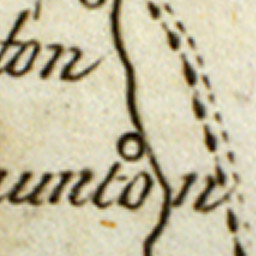 ton
unton